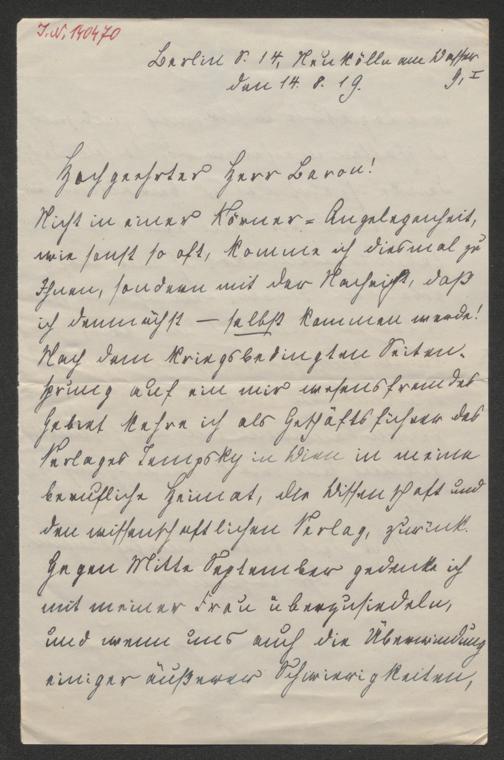 J.N. 140470
Berlin S. 14, Neukölln am Wasser
den 14. 8. 19. 9, I
Hochgeehrter Herr Baron!
Nicht in einer Körner-Angelegenheit,
wie sonst so oft, komme ich diesmal zu
Ihnen, sondern mit der Nachricht, daß
ich demnächst — selbst kommen werde!
Nach dem kriegsbedingten Seiten-
sprung auf ein mir wesensfremdes
Gebiet kehre ich als Geschäftsführer des
Verlages Tempsky in Wien in meine
berufliche Heimat, die Wissenschaft und
den wissenschaftlichen Verlag, zurück.
Gegen Mitte September gedenke ich
mit meiner Frau überzusiedeln,
und wenn uns auch die Überwindung
einiger äußerer Schwierigkeiten,